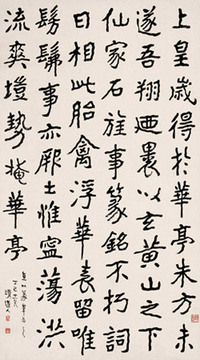 上皇歲得於華亭朱方未
遂吾翔廼裹以玄黄山之下
仙家石旌事篆銘不朽詞
曰相此胎禽浮華表留唯
髣髴事亦厥土惟寧蕩洪
流爽塏勢掩華亭
清道人